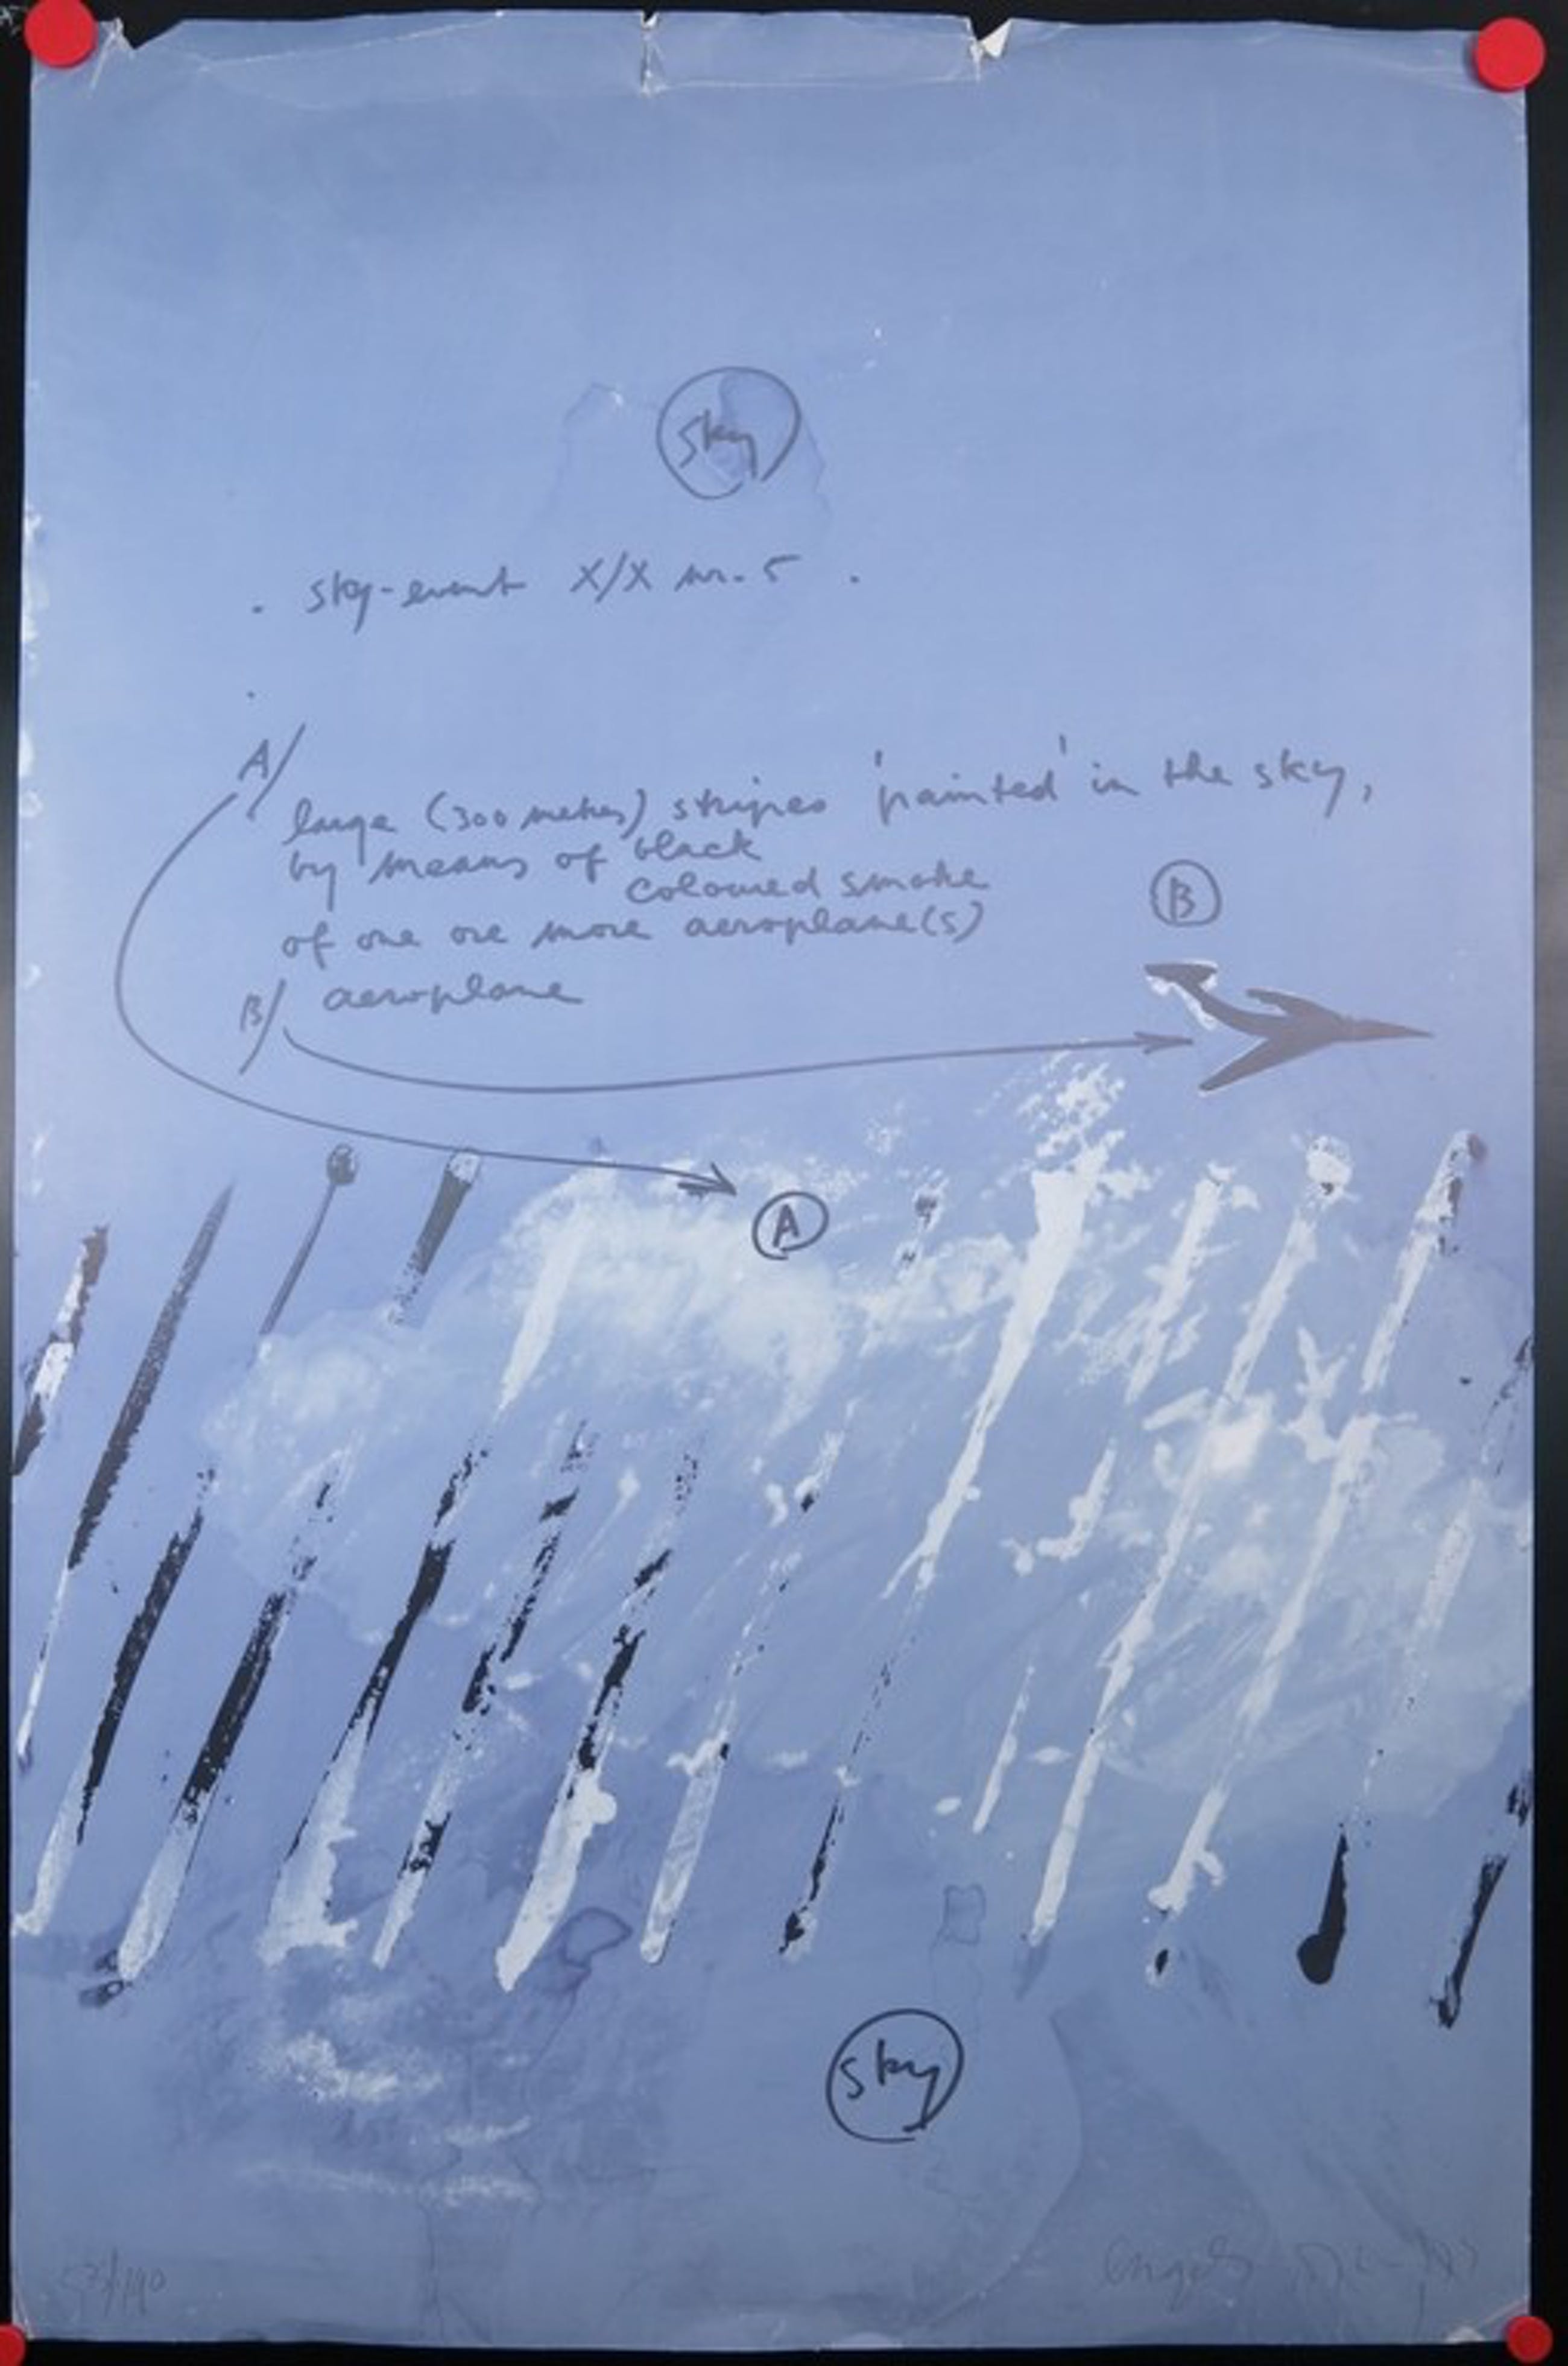 sky
. sky-event X/X nr. 5 .
A/
large (300 metres) stripes 'painted' in the sky,
by means of black
coloured smoke
of one ore more aeroplane(s)
B
B/ aeroplane
A
sky